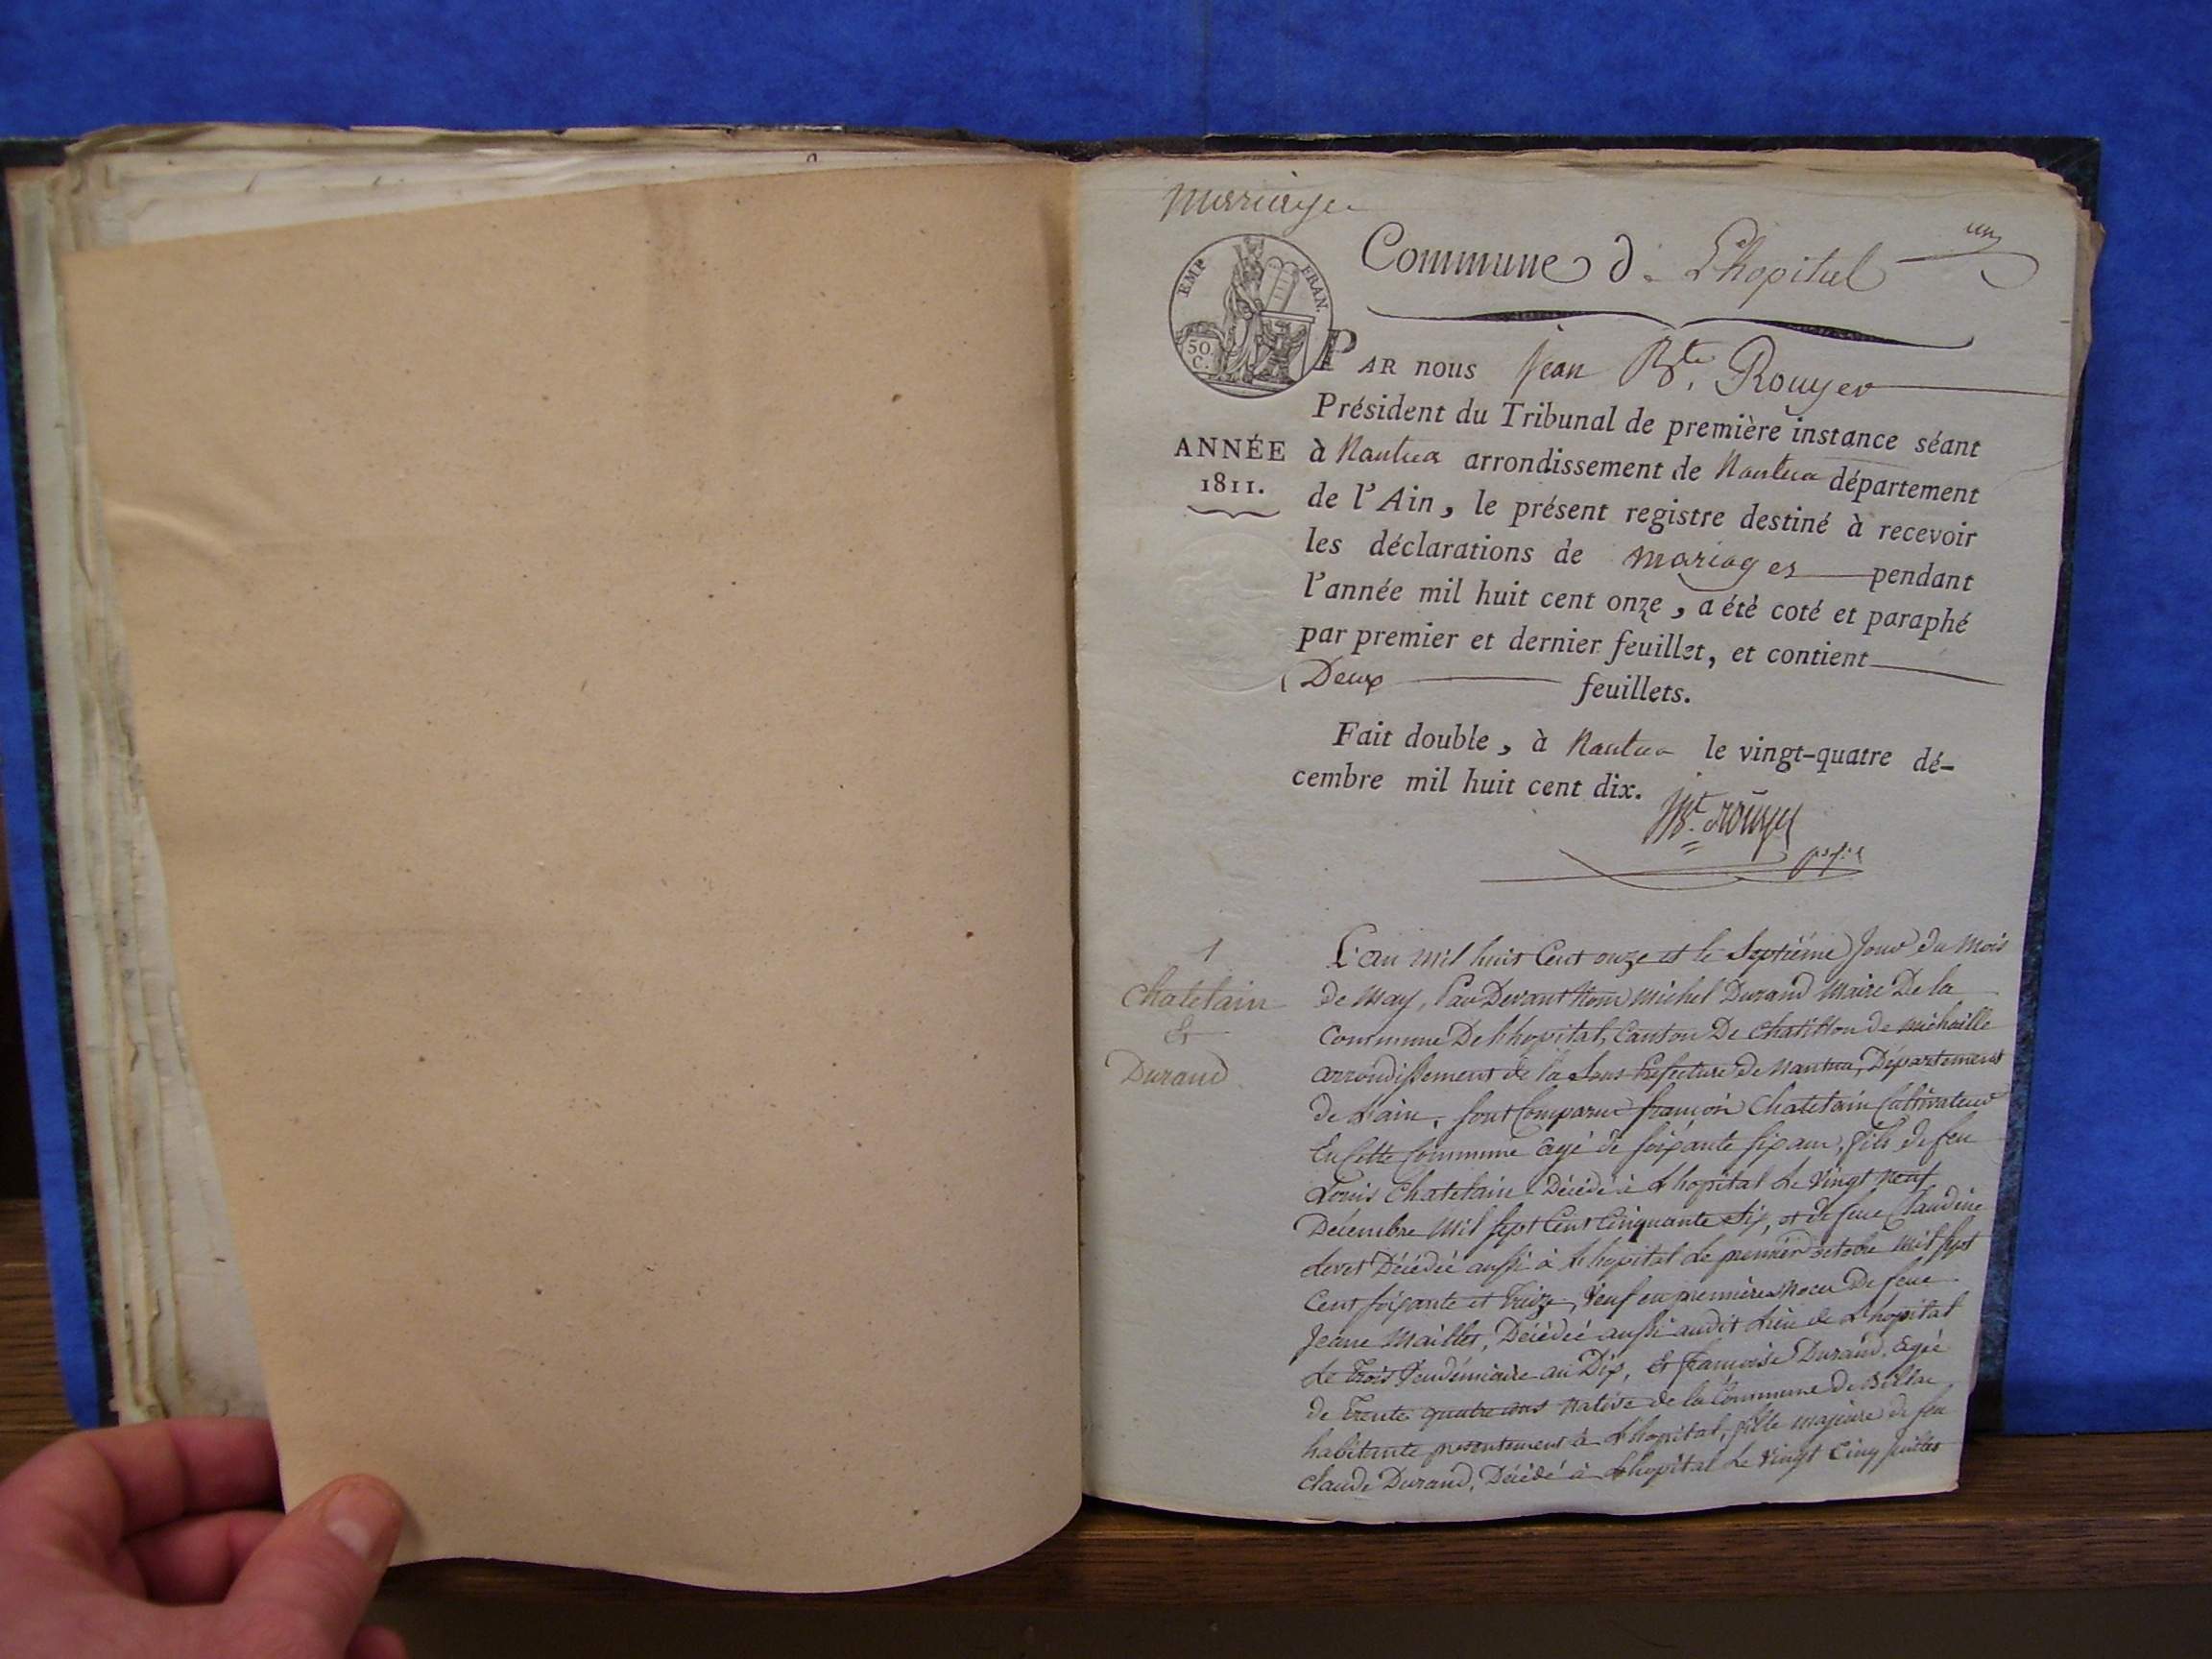 Marriages
un
Commune de L'hopital
EMP. FRAN.
50 C.
PAR nous Jean Bte. Rouyer
Président du Tribunal de première instance séant
ANNÉE
1811.
à Nantua arrondissement de Nantua département
de l'Ain, le présent registre destiné à recevoir
les déclarations de mariages pendant
l'année mil huit cent onze, a été coté et paraphé
par premier et dernier feuillet, et contient
Deux feuillets.
Fait double, à Nantua le vingt-quatre dé-
cembre mil huit cent dix.
JBt. rouyer
1
Chatelain
&
Durand
L'an mil huit Cent onze et le Septième Jour du Mois
de May, Par Devant Nous Michel Durand Maire De la
Commune De Lhopital, Canton De Chatillon de michaille
arrondissement de la Sous Prefecture de Nantua, Département
de L'ain, sont Comparus françois Chatelain Cultivateur
En Cette Commune agé de soixante six ans, fils de feu
Louis Chatelain Décédé à Lhopital Le Vingt neuf
Décembre Mil Sept Cent Cinquante Six, et de feue Claudine
Décédée aussi à Lhopital Le premier octobre Mil Sept
Cent soixante et treize, Veuf en premières Noces De feue
Jeane Maillet, Décédée aussi audit Lieu de Lhopital
Le trois Vendémiaire an Dix, Et françoise Durand, agée
de trente quatre ans Native de la Commune de Billiac
habitante presentement à Lhopital, fille majeure de feu
Claude Durand, Décédé à Lhopital Le Vingt Cinq Juillet